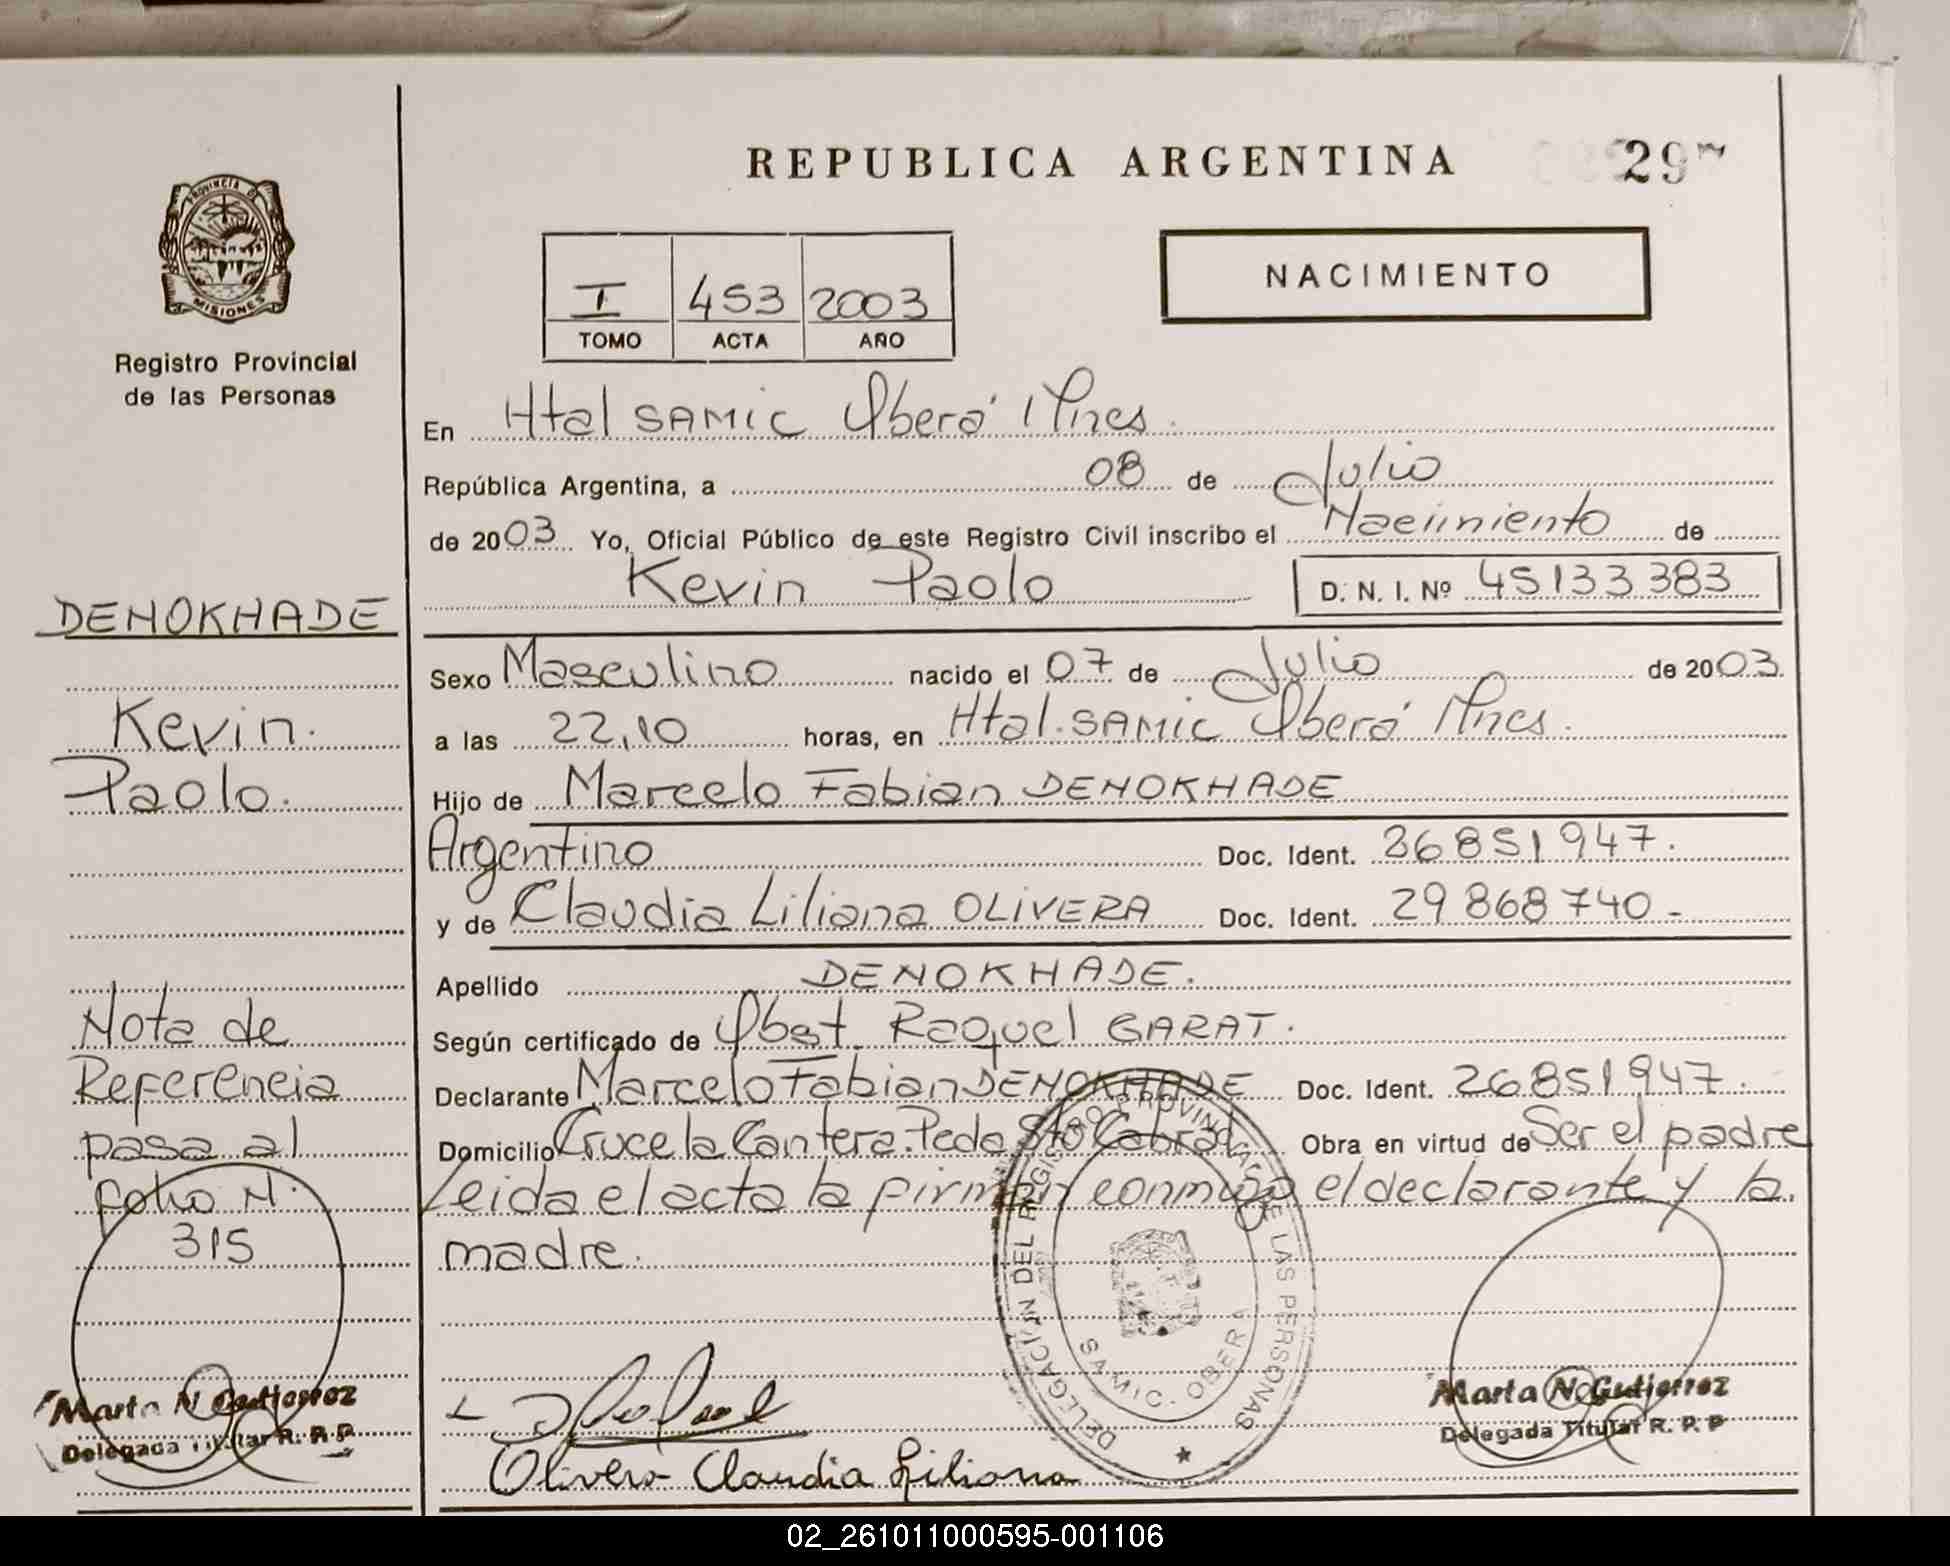 REPUBLICA ARGENTINA
29
PROVINCIA DE
MISIONES
Registro Provincial
de las Personas
I 453 2003
TOMO ACTA AÑO
NACIMIENTO
En Htal SAMIC Oberá Mnes.
República Argentina, a 08 de Julio
de 2003 Yo, Oficial Público de este Registro Civil inscribo el Nacimiento de
Kevin Paolo D. N. I. Nº 45133383
DENOKHADE
Sexo Masculino nacido el 07 de Julio de 2003
Kevin.
a las 22,10 horas, en Htal. SAMIC Oberá Mnes.
Paolo.
Hijo de Marcelo Fabian DENOKHADE
Argentino Doc. Ident. 26851947.
y de Claudia Liliana OLIVERA Doc. Ident. 29868740-
Apellido DENOKHADE.
Nota de
Referencia
pasa al
folio N.
315
Según certificado de Obst. Raquel GARAT.
Declarante Marcelo Fabian DENOKHADE Doc. Ident. 26851947.
Domicilio Cruce la Cantera. Pcde Sto Cabral Obra en virtud de Ser el padre
Leida el acta la firman conmigo el declarante y la
madre.
DELEGACIÓN DEL REGISTRO PROVINCIAL DE LAS PERSONAS
SAMIC. OBERA
Marta N Gutierrez
Delegada Titular R. P. P
Olivera Claudia Liliana
Marta N. Gutierrez
Delegada Titular R. P. P
02_261011000595-001106